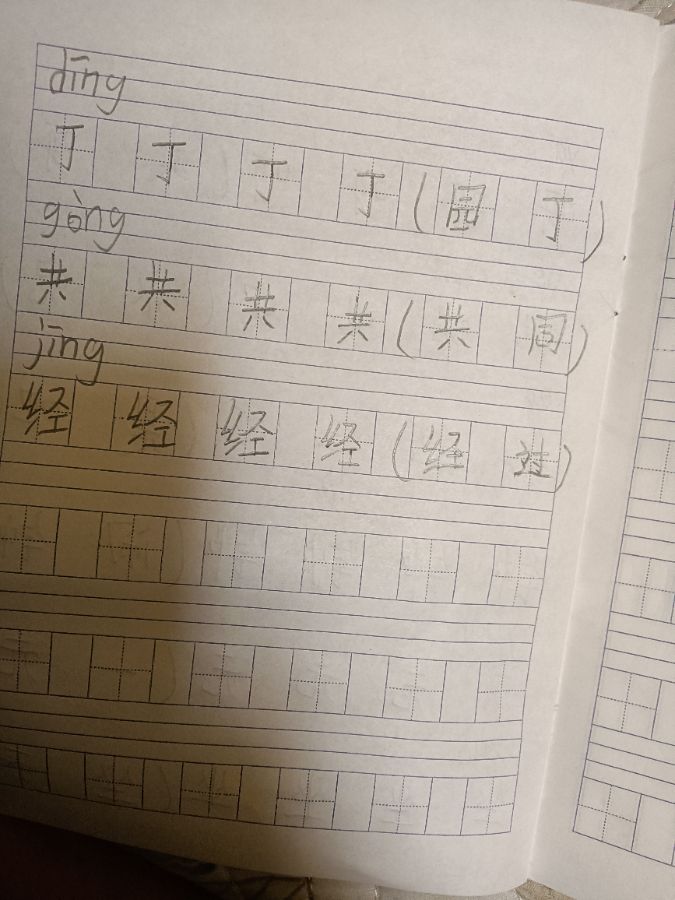 dīng
丁 丁 丁 丁 (园 丁)
gòng
共 共 共 共 (共 同)
jīng
经 经 经 经 (经 过)